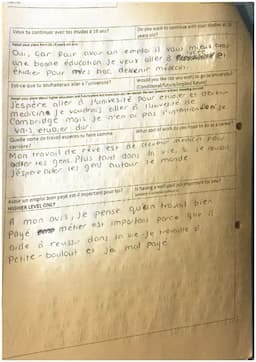 Veux tu continuer avec tes études à 18 ans?
Do you want to continue with your studies at 18
Oui, car pour avoir un emploi il vaut mieux
une bonne éducation. Je veux aller à
étudier pour mes bac devenir médecin.
Est-ce que tu souhaiterais aller à l'université?
Would you like to go to university?
J'espère aller à l'université pour étudier et
medicine. Je voudrais aller à l'université de
Cambridge mais je n'ai pas l'intention
vais étudier dur.
Quelle sorte de travail espères-tu faire comme carrière?
What sort of work do you hope to do as a career?
Mon travail de rêve est de docteur médecin pour
aider les gens. Plus tard dans la vie, je
J'espère aider les gens autour le monde
Avoir un emploi bien payé est-il important pour toi?
Is having a well paid job important for you?
HIGHER LEVEL ONLY
A mon avis, je pense qu'un travail bien
Payé métier est important parce que il
aide à reussir dans la vie. Je travaille à
Petite-boulout et je mal payé